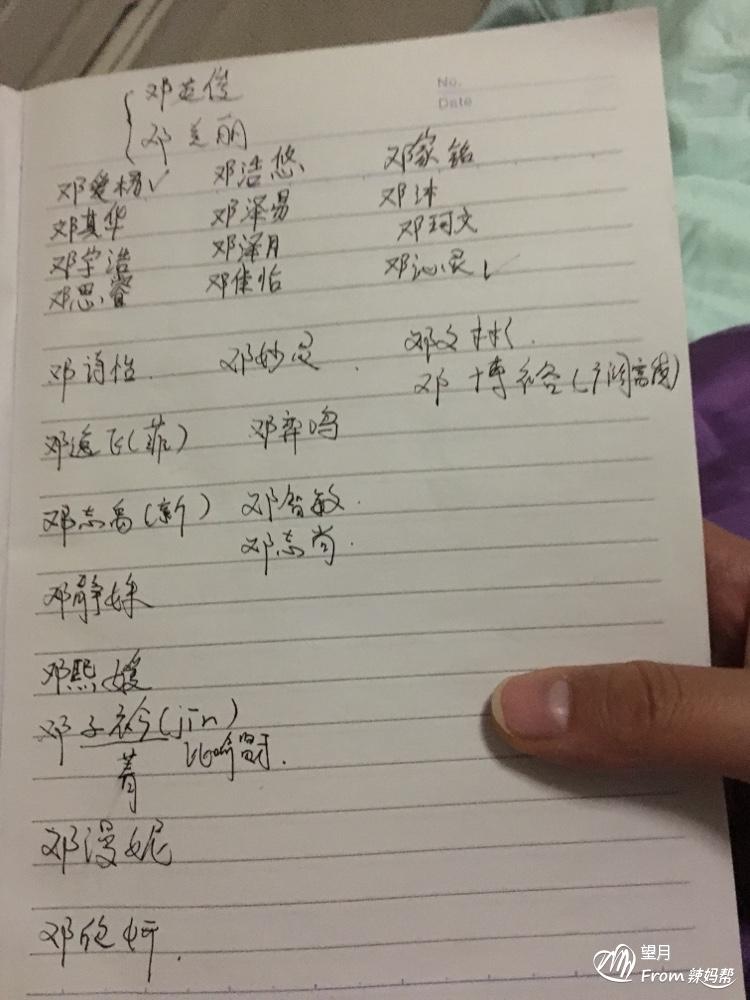 No.
Date
邓英俊
邓美丽
邓爱楠✓ 邓浩悠 邓家铭
邓其华 邓泽易 邓沐
邓学浩 邓泽月 邓珂文
邓思睿 邓佳怡 邓沁灵✓
邓诗怡. 邓妙灵. 邓文彬.
邓博裕(广阔高茂)
邓逸飞(菲) 邓弈鸣
邓志禹(新) 邓智敏.
邓志尚.
邓静姝
邓熙媛
邓子衿(jīn)
菁 比喻贤才.
邓漫妮
邓欣妍.
望月
From 辣妈帮